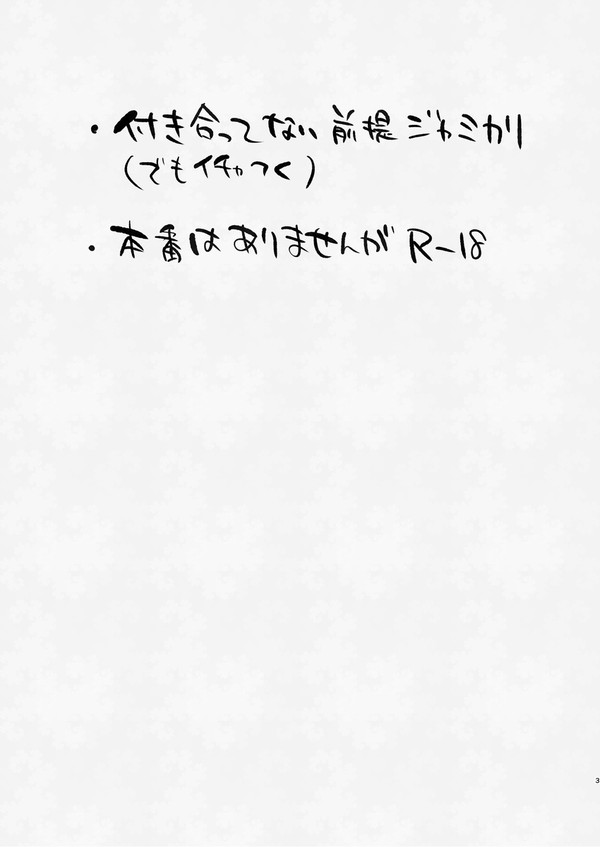 ・付き合ってない前提ジャミカリ
(でもイチャつく)
・本番はありませんがR-18
3